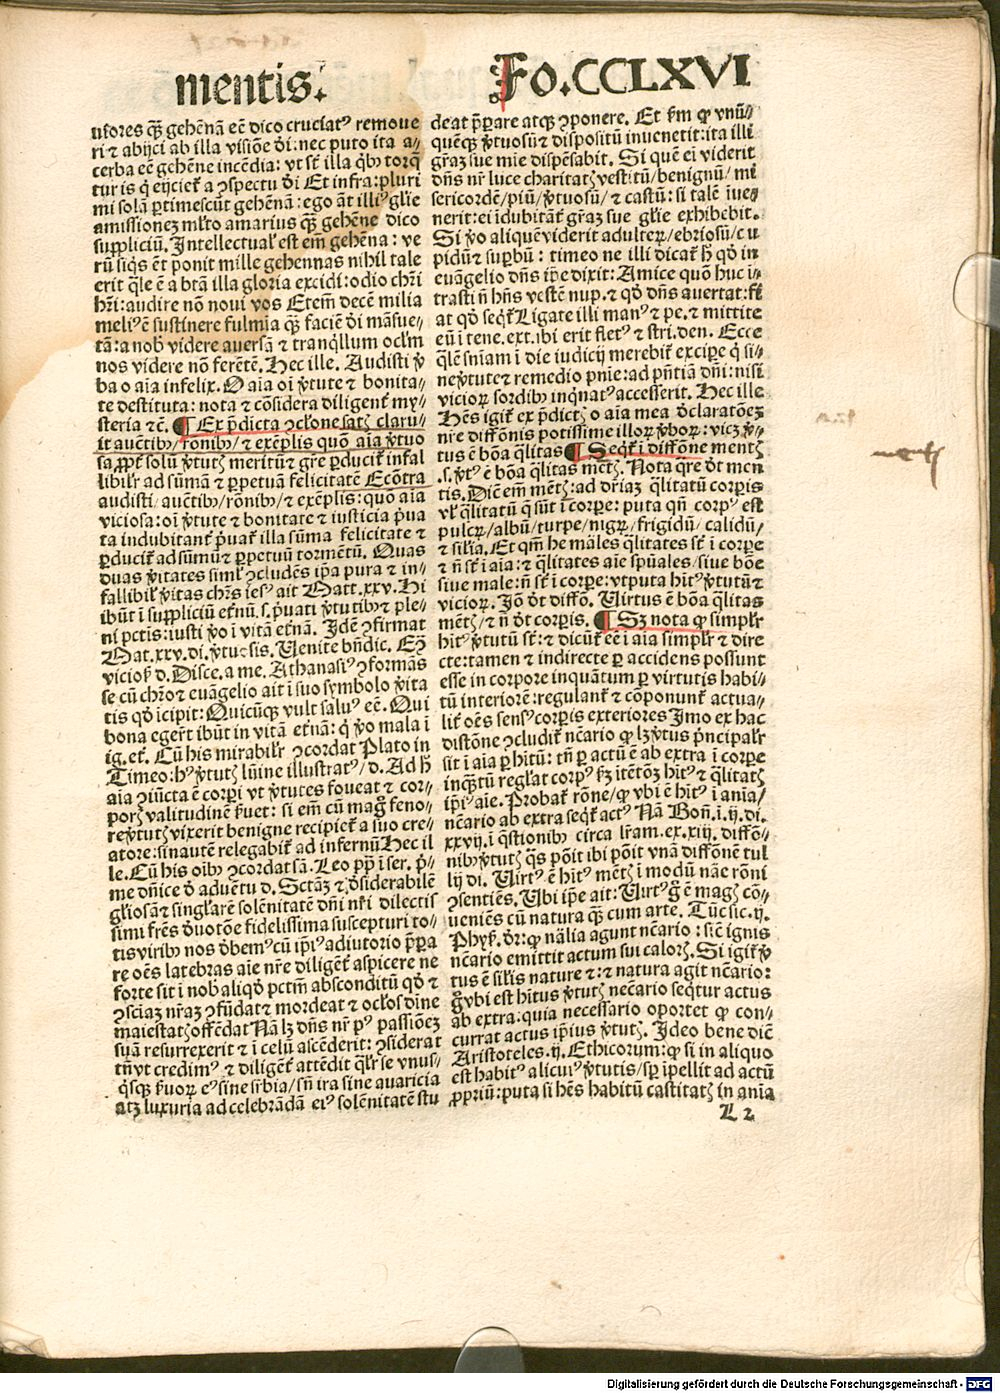 mentis.
Fo.CCLXVI
uiores qȝ gehēnā eē dico cruciatꝰ remoue
ri ⁊ abijci ab illa visiōe d̄i: nec puto ita a⸗
cerba eē gehēne incēdia: vt sc̄t illa qͥbꝰ torq̄
tur is qͥ eijcit᷑ a ꝯspectu d̄i Et infra: pluri
mi solā ꝑtimescūt gehēnā: ego āt illiꝰ gl̄ie
amissioneȝ ml̓to amarius qȝ gehēne dico
suppliciū. Intellectual̓ est em̄ gehēna: ve
rū siq̓s ēt ponit mille gehennas nihil tale
erit q̄le ē a btā illa gloria excidi: odio chr̄i
hr̄i: audire nō noui vos Etem̄ decē milia
meliꝰ ē sustinere fulmīa qȝ faciē d̄i māsue⸗
tā: a nob̓ videre auersā ⁊ tranq̓llum ocl̓m
nos videre nō ferētē. Hec ille. Audisti v̓
ba o aīa infelix. O aīa oī v̓tute ⁊ bonita⸗
te destituta: nota ⁊ cōsidera diligent̓ my⸗
steria ⁊c̄. ¶ Ex p̄dicta ꝯcl̓one satȝ claru⸗
it auctibꝰ/ rōnibꝰ/ ⁊ exēplis quō aīa v̓tuo
sa ꝓpt̓ solū v̓tutȝ meritū ⁊ gr̄e ꝑducit᷑ infal
libil̓r ad sūmā ⁊ ꝑpetuā felicitatē Ecōtra
audisti/ auctibꝰ/ rōnibꝰ/ ⁊ exēplis: quō aīa
viciosa: oī v̓tute ⁊ bonitate ⁊ iusticia p̓ua
ta indubitant̓ p̓uat᷑ illa sūma felicitate ⁊
ꝑducit᷑ ad sūmū ⁊ ꝑpetuū tormētū. Quas
duas v̓itates siml̓ ꝯcludēs ip̄a pura ⁊ in⸗
fallibil̓ v̓itas chr̄s iesꝰ ait Matt.xxv. Hi
ibūt ī suppliciū et̓nū .s. p̓uati v̓tutibꝰ ⁊ ple⸗
ni pctis: iusti v̓o ī vitā et̓nā. Idē ꝯfirmat
Mat.xxv.di. v̓tuosis. Uenite bn̄dic. Eȝ
viciosꝰ d. Disce. a me. Athanasiꝰ ꝯformās
se cū chr̄o ⁊ euāgelio ait ī suo symbolo v̓ita
tis qd̓ īcipit: Quicūqȝ vult saluꝰ eē. Qui
bona eger̄t ibūt in vitā et̓nā: qͥ v̓o mala ī
ig. et̓. Cū his mirabil̓r ꝯcordat Plato in
Timeo: hꝰ v̓tutȝ lūine illustratꝰ/ d. Ad h̄
aīa ꝯiūcta ē corp̄i vt v̓tutes foueat ⁊ cor⸗
porȝ valitudinē s̓uet: si em̄ cū mag̓ feno⸗
re v̓tutȝ vixerit benigne recipiet᷑ a suo cre⸗
atore: sinautē relegabit᷑ ad infernū Hec il
le. Cū his oībꝰ ꝯcordat sā. Leo pp̄ ī ser. p̓⸗
me dn̄ice d̓ aduētu d. Sctāȝ ⁊ d̓siderabilē
gl̓iosā ⁊ singl̓arē solēnitatē dn̄i nr̄i dilectis
simi fr̄es d̓uotōe fidelissima suscepturi to⸗
tis viribꝰ nos d̓bemꝰ cū ip̄iꝰ adiutorio p̄ꝑa
re oēs latebras aīe nr̄e diligēt᷑ aspicere ne
forte sit ī nob̓ aliqd̓ pctm̄ absconditū qd̓ ⁊
ꝯsciaȝ nr̄aȝ ꝯfūdat ⁊ mordeat ⁊ ocl̓os diīe
maiestatȝ offēdat Nā lȝ dn̄s nr̄ pꝰ passiōeȝ
suā resurrexerit ⁊ ī celū ascēderit: ꝯsiderat
tn̄ vt credimꝰ ⁊ diligēt᷑ attēdit q̄lr̓ se vnus⸗
qͥsqȝ s̓uorꝝ eꝰ sine sūbia/ sn̄ ira sine auaricia
atȝ luxuria ad celebrādā eiꝰ solēnitatē stu
deat p̄ꝑare atqȝ ꝯponere. Et s̓m ꝙ vnū⸗
quēqȝ v̓tuosū ⁊ dispositū inuenetit: ita illi
gr̄aȝ sue mīe dispēsabit. Si quē ei viderit
dn̄s nr̄ luce charitatȝ vestitū/ benignū/ mi
sericordē/ piū/ v̓tuosū/ ⁊ castū: si talē iue⸗
nerit: ei idubitāt᷑ gr̄aȝ sue gl̄ie exhibebit.
Si v̓o aliquē viderit adulterꝝ/ ebriosū/ cu
pidū ⁊ suꝑbū: timeo ne illi dicat᷑ h̄ qd̓ in
euāgelio dn̄s ip̄e dixit: Amice quō huc ī⸗
trasti n̄ hn̄s vestē nup. ⁊ qd̓ dn̄s auertat: fi
at qd̓ seqt᷑ Ligate illi manꝰ ⁊ pe. ⁊ mittite
eū ī tene. ext. ibi erit fletꝰ ⁊ stri. den. Ecce
q̄lē sn̄iam ī die iudicij merebit᷑ excipe qͥ si⸗
ne v̓tute ⁊ remedio pn̄ie: ad pn̄tiā dn̄i: nisi
viciorꝝ sordibꝰ inqͥnatꝰ accesserit. Hec ille
Hēs igit᷑ ex p̄dictȝ o aīa mea d̓claratōeȝ
nr̄e diff̄onis potissime illorꝝ v̓borꝝ: vicȝ v̓⸗
tus ē bōa q̄litas ¶ Seqt᷑ ī diff̄one mentȝ
.s. v̓tꝰ ē bōa q̄litas mētȝ. Nota qr̄e d̓t men
tis. Dīcē em̄ mētȝ: ad dr̄iaȝ q̄litatū corꝑis
vl̓ q̄litatū q̄ sūt ī corꝑe: puta qn̄ corpꝰ est
pulcꝝ/ albū/ turpe/ nigrꝝ/ frigidū/ calidū/
⁊ sil̓ia. Et qm̄ he māles q̄litates sūt ī corꝑe
⁊ n̄ sūt ī aīa: ⁊ q̄litates aīe spūales/ siue bōe
siue male: n̄ sūt ī corꝑe: vtputa hītꝰ v̓tutū ⁊
viciorꝝ. Iō d̓t diff̄o. Uirtus ē bōa q̄litas
mētȝ/ ⁊ n̄ d̓t corꝑis. ¶ Sȝ nota ꝙ simpl̓r
hītꝰ v̓tutū sūt: ⁊ dicūt᷑ eē ī aīa simpl̓r ⁊ dire
cte: tamen ⁊ indirecte ꝑ accidens possunt
esse in corpore inquātum ꝑ virtutis habi⸗
tū interiorē: regulant᷑ ⁊ cōponunt᷑ actua⸗
lit᷑ oēs sensꝰ corꝑis exteriores Imo ex hac
distōne ꝯcludit᷑ nc̄ario ꝙ lȝ v̓tus p̓ncipal̓r
sit ī aīa ꝑ hītū: tn̄ ꝑ actū ē ab extra ī corꝑe
inqȝtū regl̓at corpꝰ s̓ȝ itētōȝ hītꝰ ⁊ q̄litatȝ
ip̄iꝰ aīe. Probat᷑ rōne/ ꝙ vbi ē hītꝰ ī anīa/
nc̄ario ab extra seqt᷑ actꝰ Nā Boñ.ī.ij.di.
xxvij. ī q̄stionibꝰ circa lr̄am. ex.xiij. diffō⸗
nibꝰ v̓tutȝ q̄s pōit ibi pōit vnā diff̄onē tul
lij di. Uirtꝰ ē hītꝰ mētȝ ī modū nāe rōni
ꝯsentiēs. Ubi ip̄e ait: Uirtꝰ g̓ ē magȝ cō⸗
ueniēs cū natura qȝ cum arte. Tūc sic.ij.
Phys̓. d̓r: ꝙ nālia agunt nc̄ario: sicē ignis
nc̄ario emittit actum sui calorȝ. Si igit᷑ v̓
tus ē sil̓is nature ⁊: ⁊ natura agit nc̄ario:
g̓ vbi est hītus v̓tutȝ nec̄ario seqtur actus
ab extra: quia necessario oportet ꝙ con⸗
currat actus ip̄ius v̓tutȝ. Ideo bene dīc
Aristoteles.ij. Ethicorum: ꝙ si in aliquo
est habitꝰ alicuiꝰ v̓tutis/ sꝑ ipellit ad actū
ꝓpriū: puta si hēs habitū castitatȝ in anīa
L 2
Digitalisierung gefördert durch die Deutsche Forschungsgemeinschaft - DFG